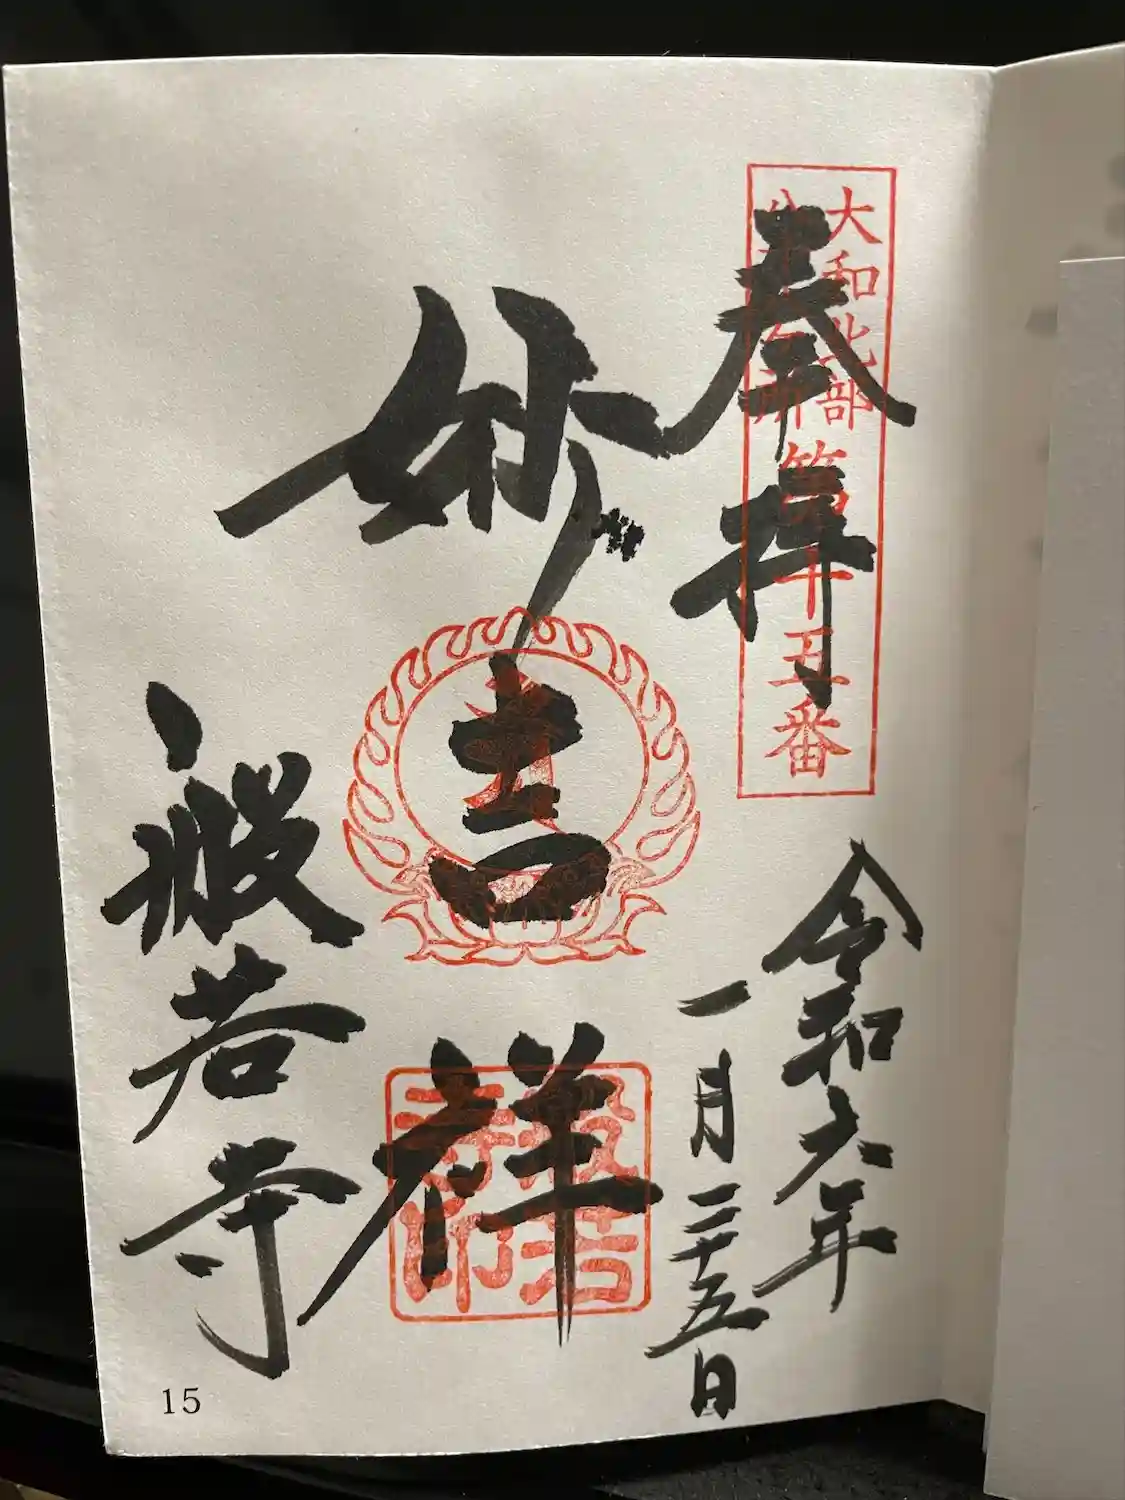 大和北部
八十八ヶ所
第十五番
奉拝
令和六年
一月二十五日
妙吉祥
般若寺
般若
寺印
15